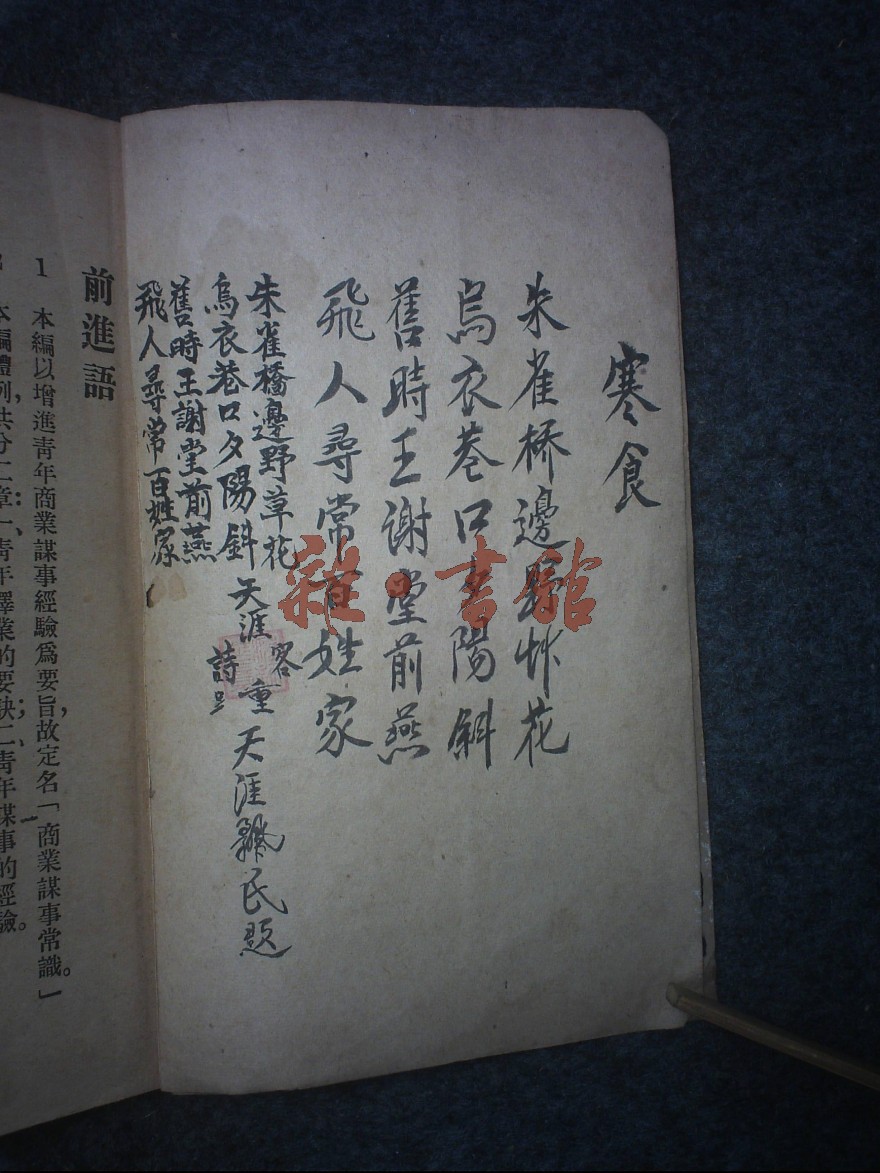 寒食
朱雀桥邊野艸花
烏衣巷口夕陽斜
舊時王谢堂前燕
飛人尋常百姓家
朱雀橋邊野草花
烏衣巷口夕陽斜
舊時王謝堂前燕
飛人尋常百姓家
天涯客重
詩
天涯飄民題
雜·書館
前進語
1 本編以增進青年商業謀事經驗爲要旨,故定名「商業謀事常識。」
本編體例,共分二章:一、青年擇業的要訣;二、青年謀事的經驗。